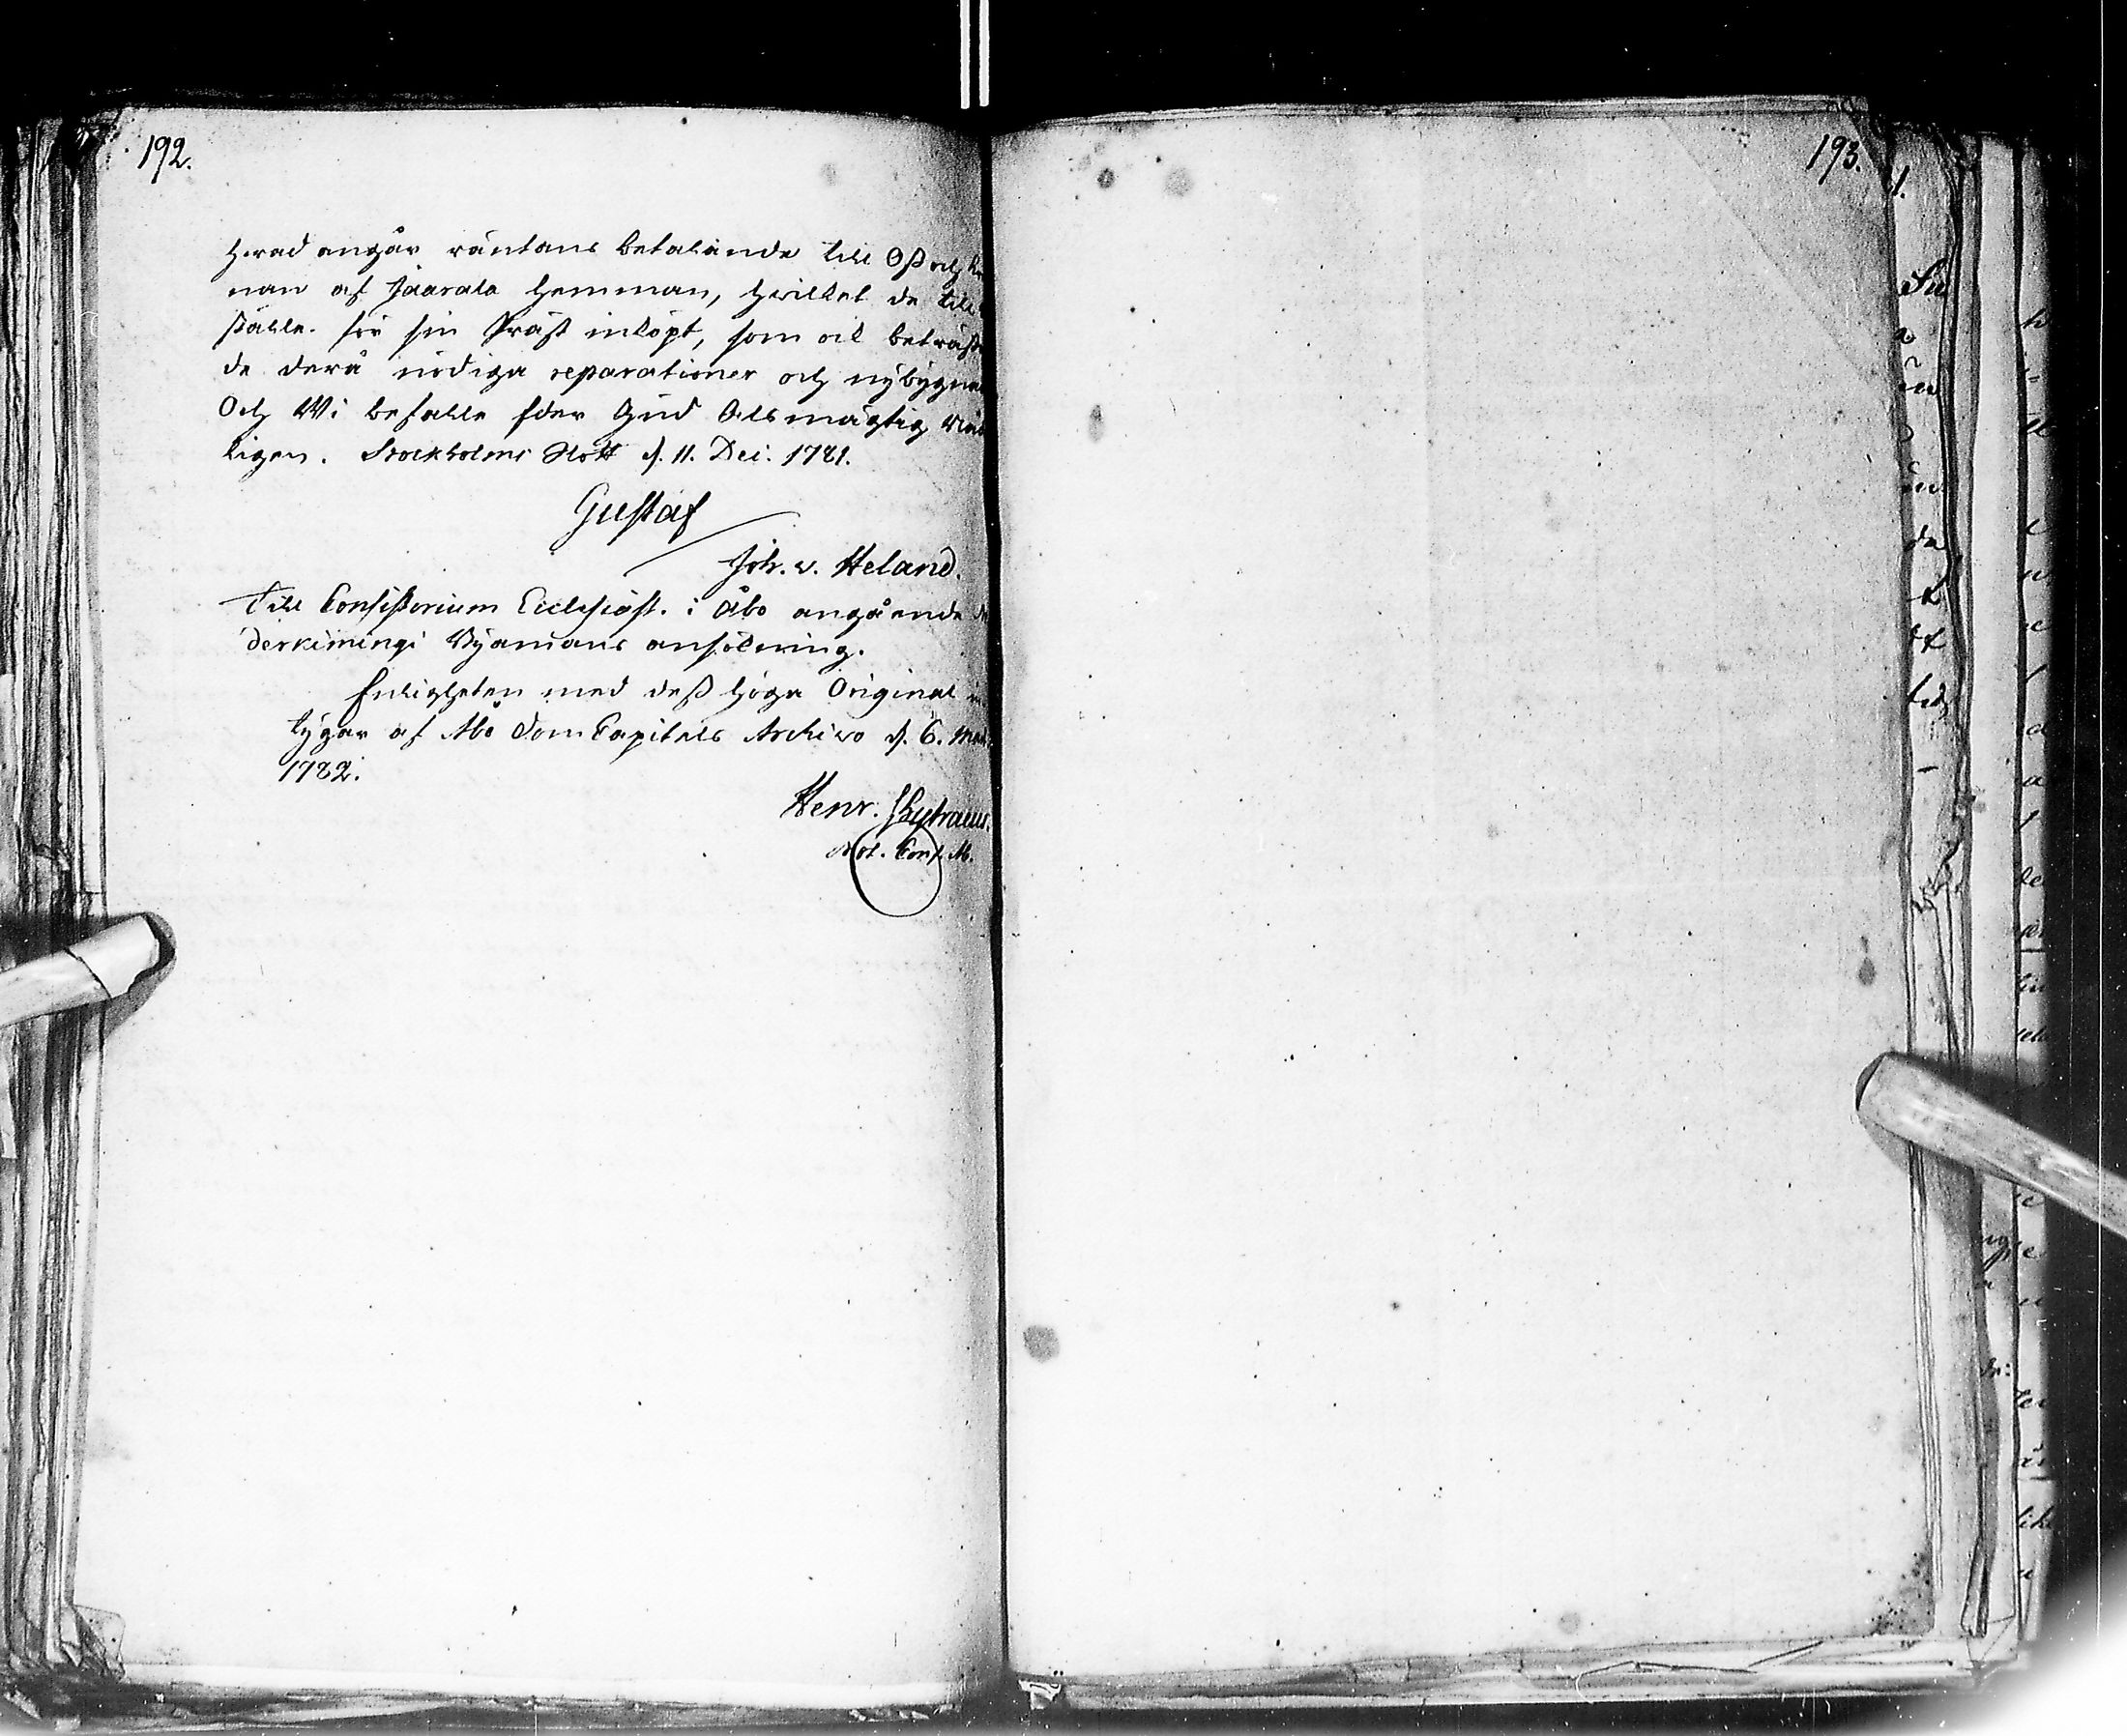 192.
hvad angår räntans betalande till Oß och
nan af Jaarala Hemman, hvilket de till
ställe för sin Präst inköpt, som ock beträff
de derå nödiga reparationer och nybygna
Och Wi befalle Eder Gud Alsmägtig
ligen. Stockholms Slott d. 11. Dec. 1781.
Gustaf
Joh. v. Heland.
Till Consistorium Ecclesiast. i Åbo angående
derkimingi Byamäns ansökning.
Enligheten med deß höga Original
tygar af Åbo DomCapitels Archivo d. 6.
1782.
Henr.
Not. Cons. A.
193.